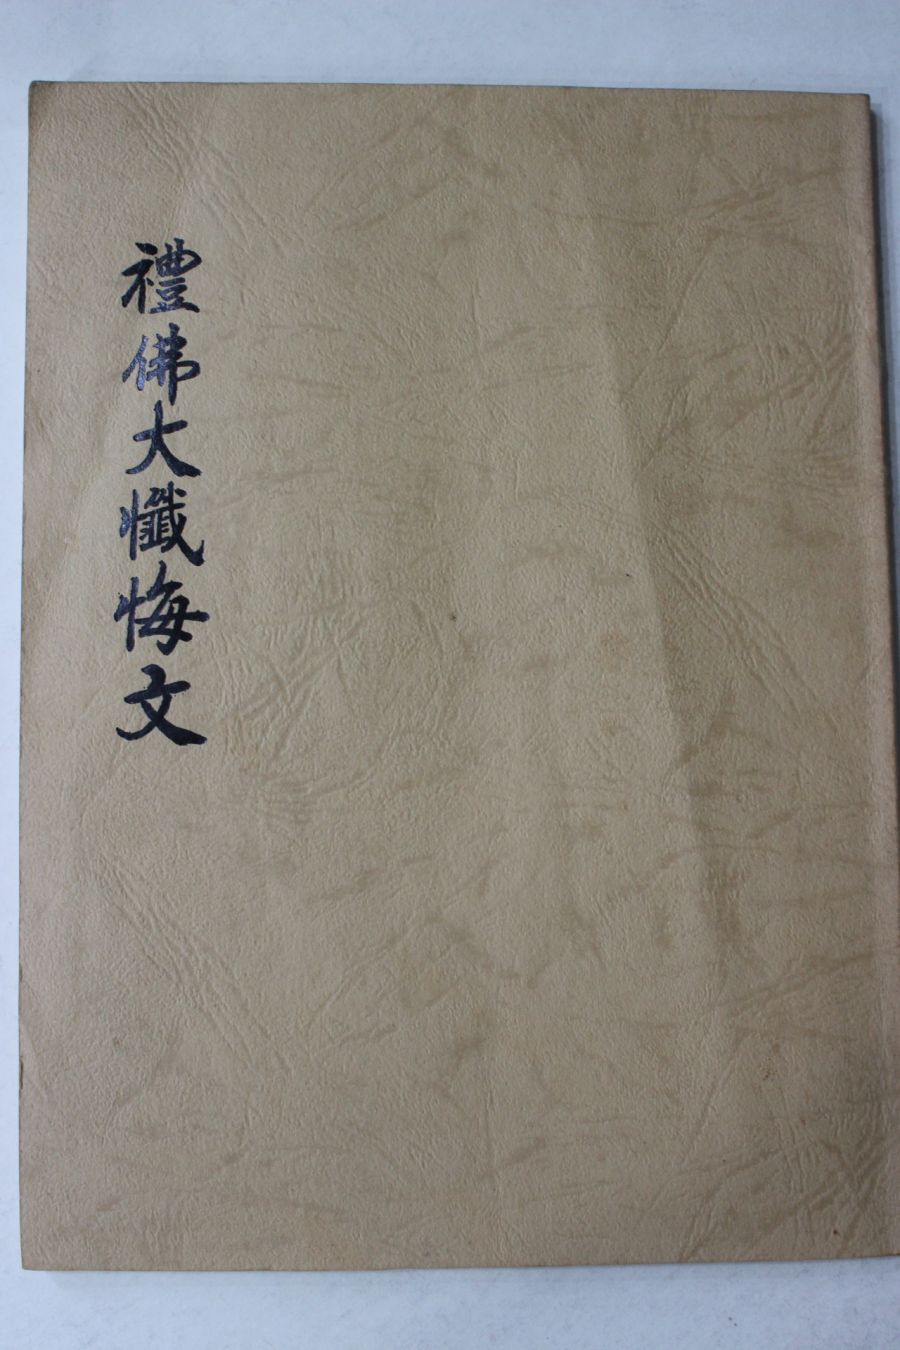 禮佛大懺悔文